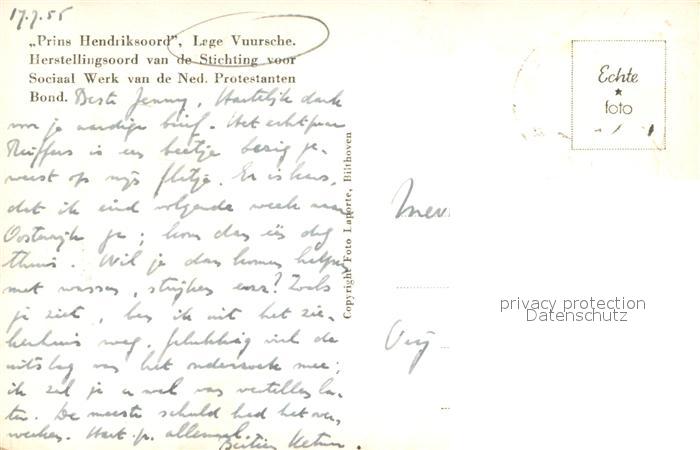 17.7.55
„Prins Hendriksoord”, Lage Vuursche.
Herstellingsoord van de Stichting voor
Sociaal Werk van de Ned. Protestanten
Bond. Beste Jenny, Hartelijk dank
voor je aardige brief. Het echtpaar
is een beetje bezig ge-
weest op mijn fletje. Er is kans,
dat ik eind volgende week naar
Oosterwijk ga; kom dan één dag
thuis. Wil je dan komen helpen
met wassen, strijken enz? Zoals
je ziet, ben ik uit het zie-
kenhuis weg. Gelukkig viel de
uitslag van het onderzoek mee;
ik zal je er wel van vertellen la-
ter. De meeste schuld had het ver-
werken. Hart. gr. allemaal.
Copyright Foto Laporte, Bilthoven
Echte
foto
Mev
privacy protection
Datenschutz